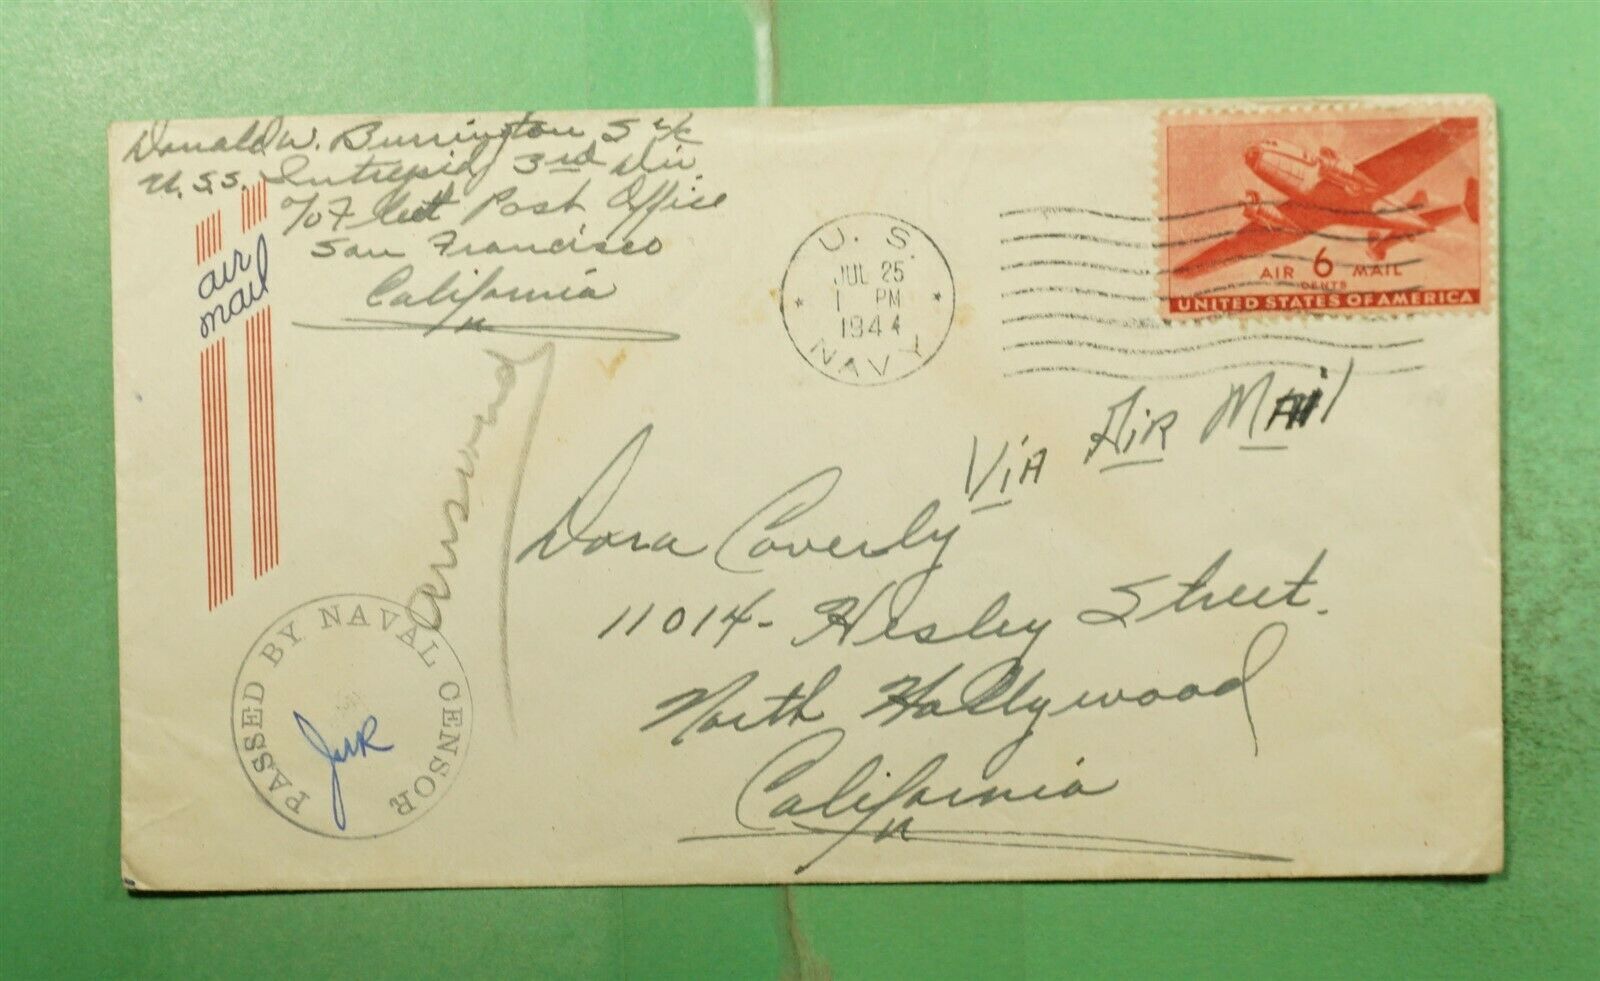 Donald W. Burrington S 2/c
U.S.S. Intrepid 3rd Div.
c/o Fleet Post Office
San Francisco
California
air
mail
U. S.
JUL 25
1 PM
1944
NAVY
AIR 6 MAIL
CENTS
UNITED STATES OF AMERICA
Via Air Mail
answered
Dora Coverly
11014- Hesley Street.
North Hollywood
California
PASSED BY NAVAL CENSOR